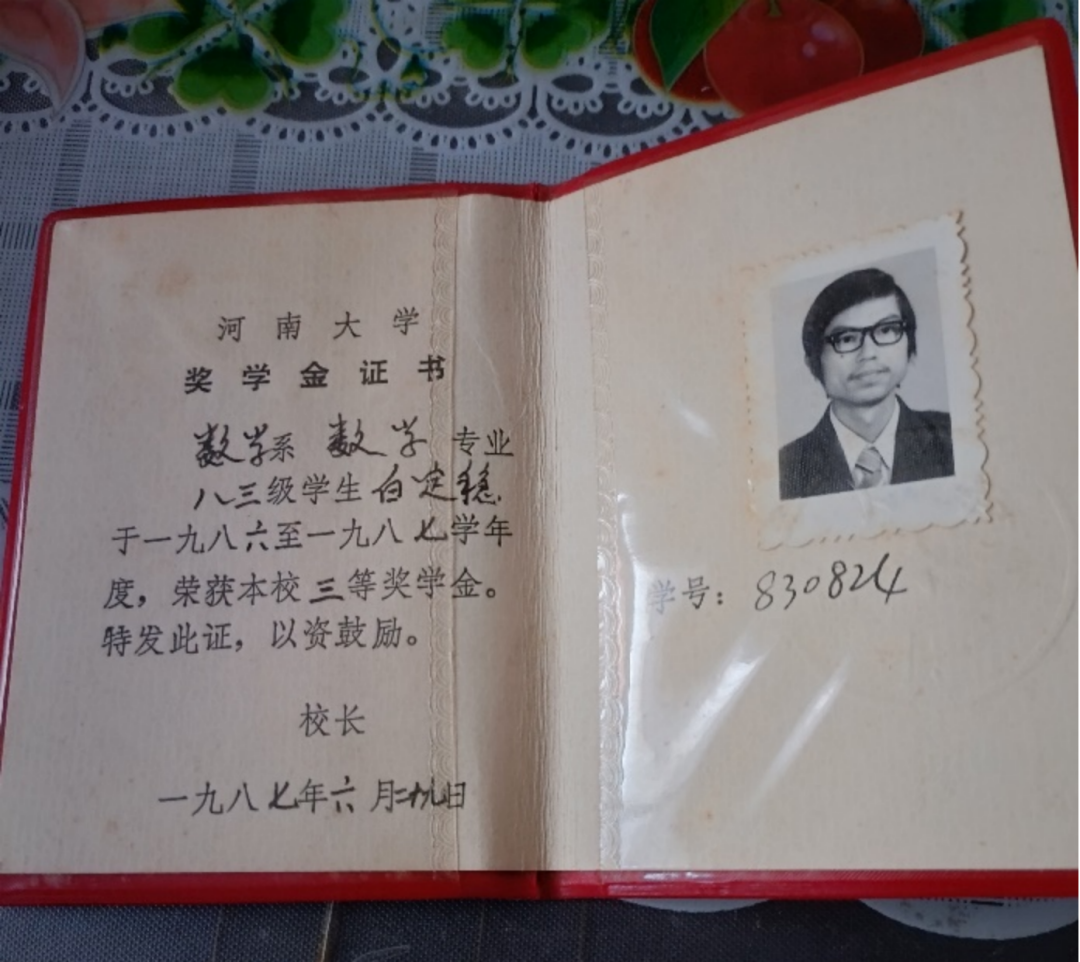 河南大学
奖学金证书
数学系 数学 专业
八三级学生白定稳
于一九八六至一九八七学年
度，荣获本校三等奖学金。
特发此证，以资鼓励。
校长
一九八七年六月二十九日
学号：830824